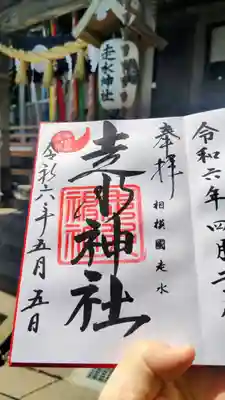 走水神社
令和六年四月二
奉拝
相模國走水
走水神社
令和六年五月五日